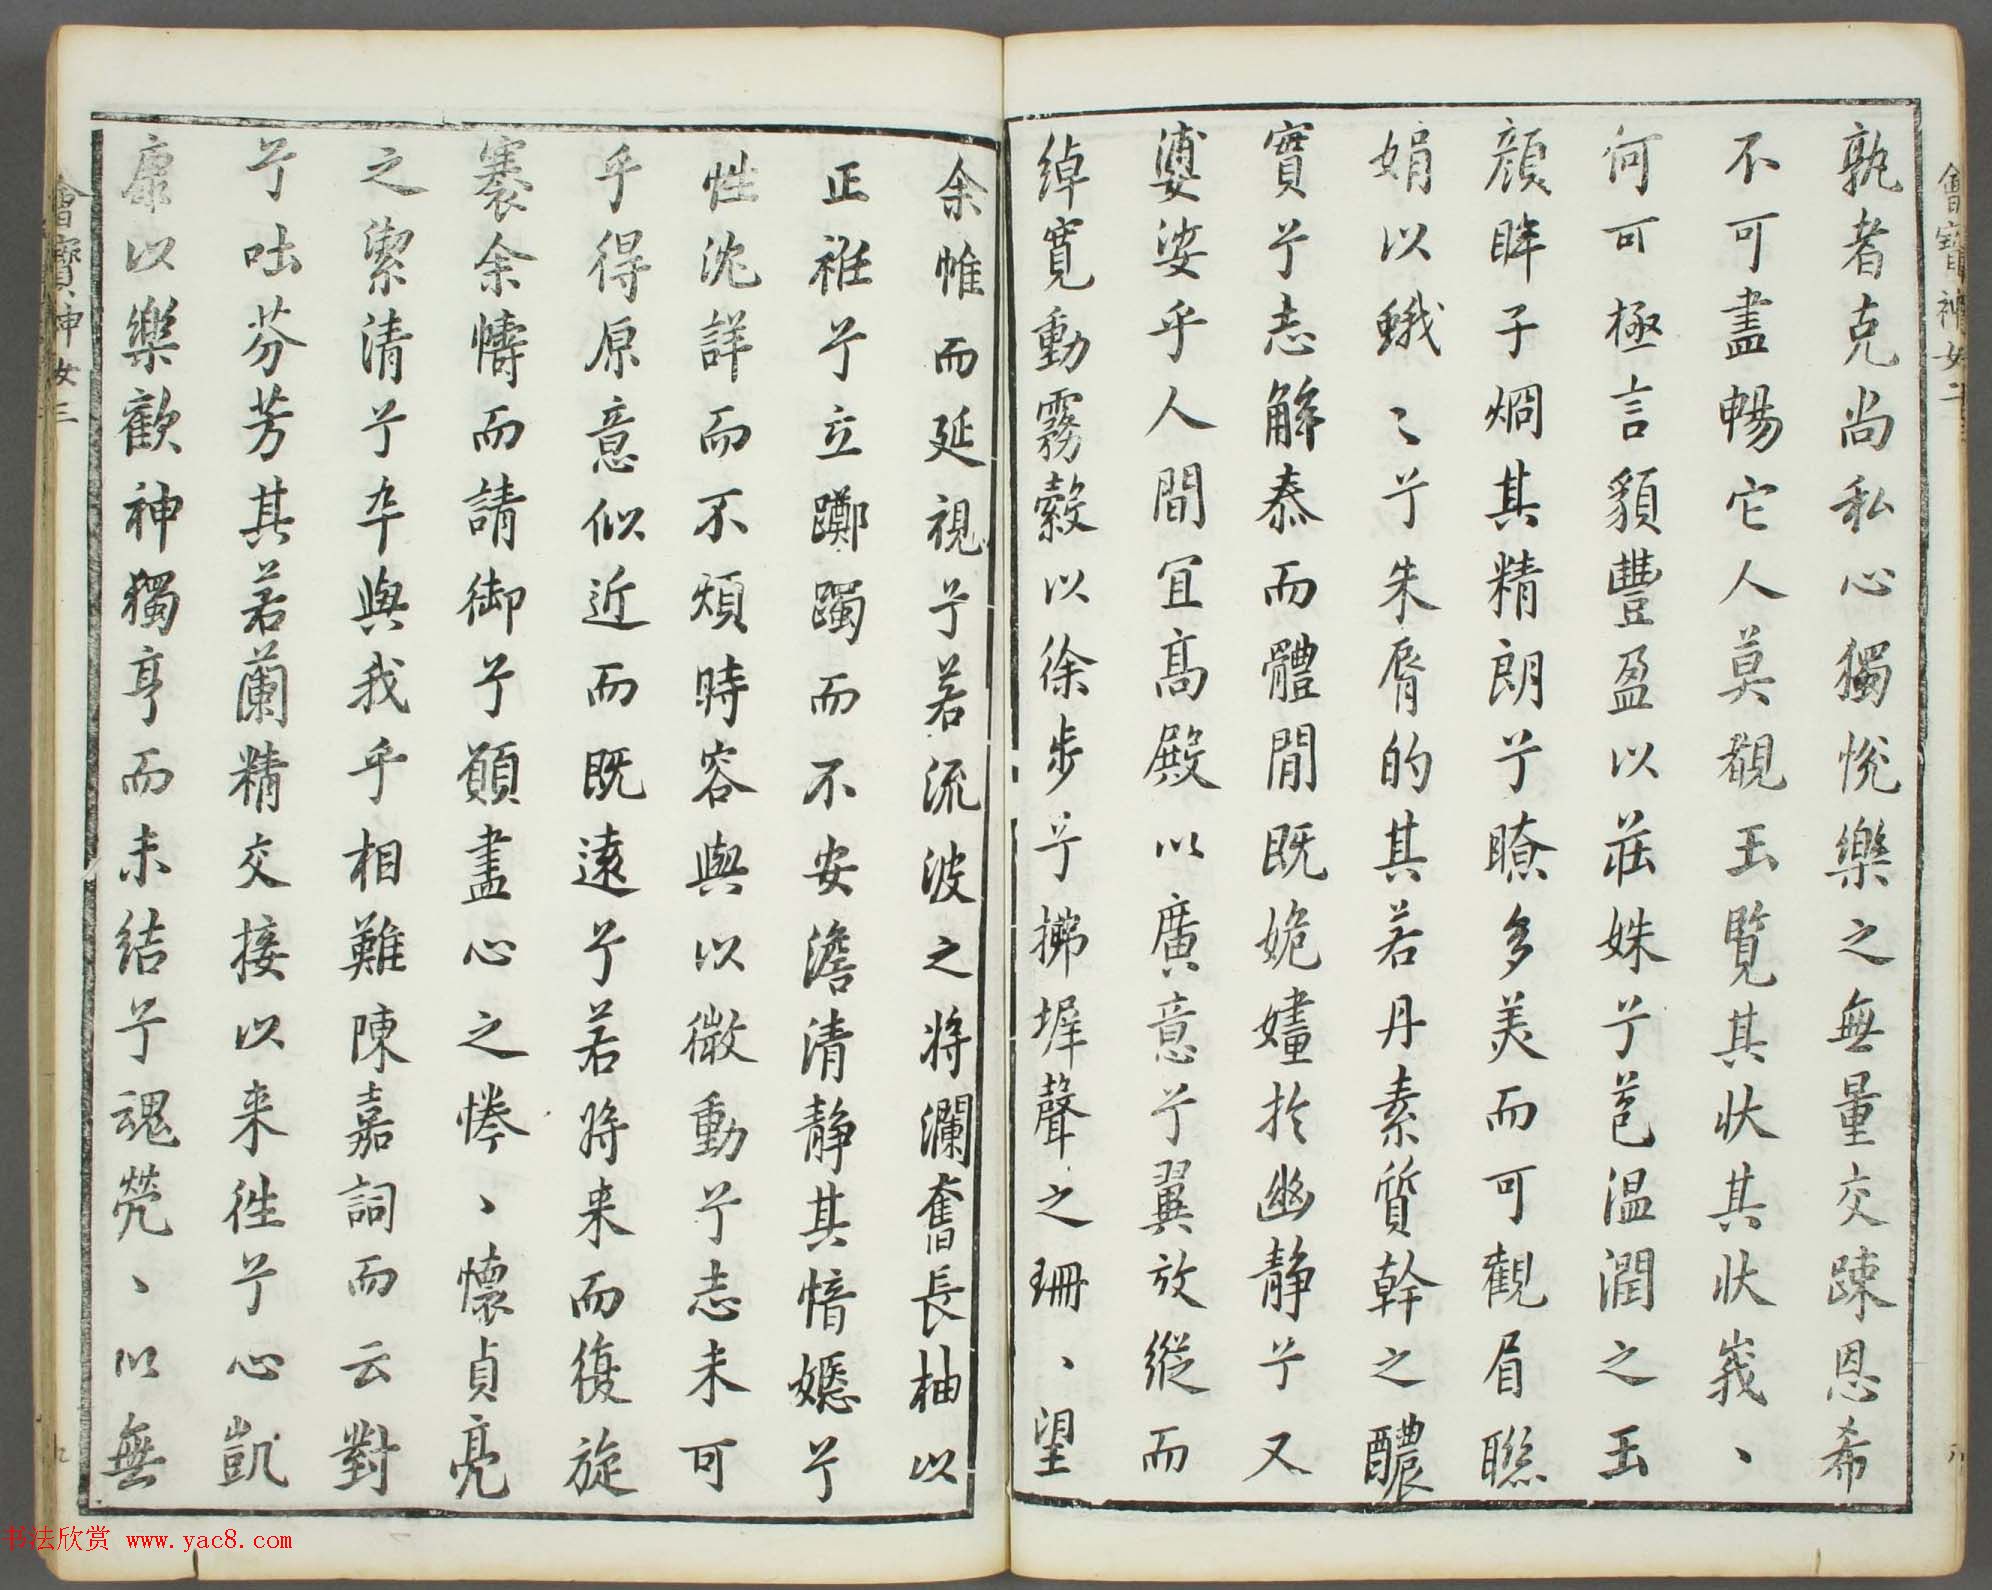 孰者克尚私心獨悅樂之無量交踈恩希
不可盡暢它人莫覩玉覧其狀其狀峩、
何可極言貌豐盈以莊姝兮苞温潤之玉
顔眸子炯其精朗兮瞭多美而可觀眉聮
娟以蛾〻兮朱脣的其若丹素質幹之醲
實兮志解泰而體閒既姽嫿於幽静兮又
婆娑乎人間宜髙殿以廣意兮翼放縱而
綽寛動霧縠以徐步兮拂墀聲之珊、望
余帷而延視兮若流波之将瀾奮長柚以
正袵兮立躑躅而不安澹清静其愔嫕兮
性沈詳而不煩時容與以微動兮志未可
乎得原意似近而既逺兮若将来而復旋
褰余幬而請御兮願盡心之惓、懷貞亮
之潔清兮卒與我乎相難陳嘉詞而云對
兮吐芬芳其若蘭精交接以来徃兮心凱
康以樂歡神獨亨而未結兮魂煢、以無
會寳神女二
會寳神女三
九
书法欣赏 www.yac8.com